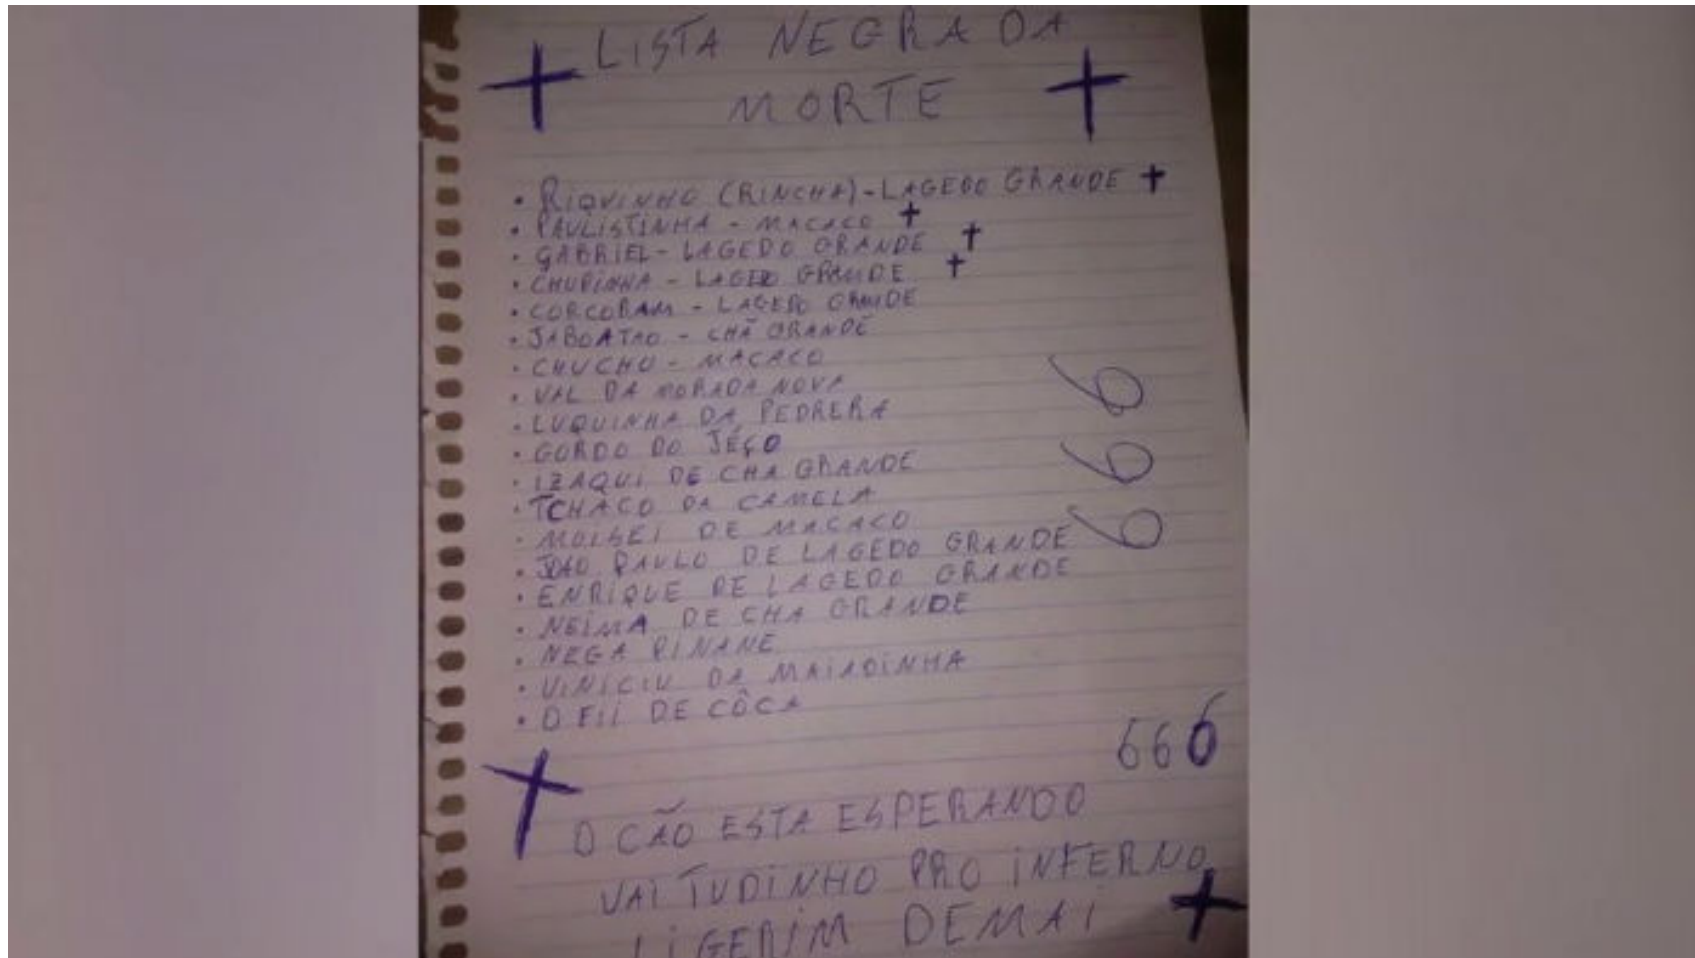 LISTA NEGRA DA
MORTE
• RIQUINHO (RINCHA) - LAGEDO GRANDE
• PAULISTINHA - MACACO
• GABRIEL - LAGEDO GRANDE
• CHUPINHA - LAGEDO GRANDE
• CORCORAM - LAGEDO GRANDE
• JABOATAO - CHÃ GRANDE
• CHUCHU - MACACO
• VAL DA MORADA NOVA
• LUQUINHA DA PEDRERA
• GORDO DO JÉÇO
• IZAQUI DE CHA GRANDE
• TCHACO DA CAMELA
• MOISEI DE MACACO
• JOAO PAULO DE LAGEDO GRANDE
• ENRIQUE DE LAGEDO GRANDE
• NEIMA DE CHA GRANDE
• NEGA
• VINICIU DA MAIADINHA
• O FII DE CÔCA
6
6
6
666
O CÃO ESTA ESPERANDO
VAI TUDINHO PRO INFERNO
LIGERIM DEMAI